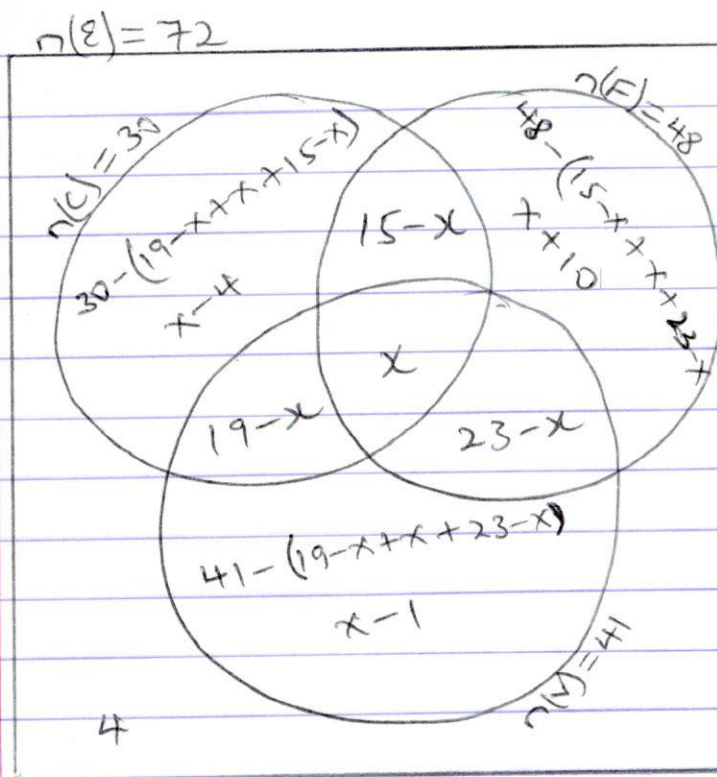 n(ℰ) = 72
n(C) = 30
30-(19-x+x+15-x)
x-4
15-x
n(F)=48
48-(15-x+x+23-x
x+10
x
19-x
23-x
41-(19-x+x+23-x)
x-1
n(V)=41
4